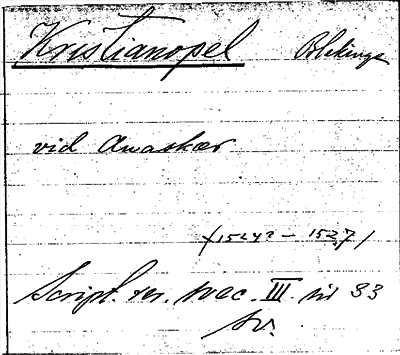 Kristianopel Blekinge
vid Avaskær
(1524? - 1527)
Script. rer. svec. III. nr 33
sv.